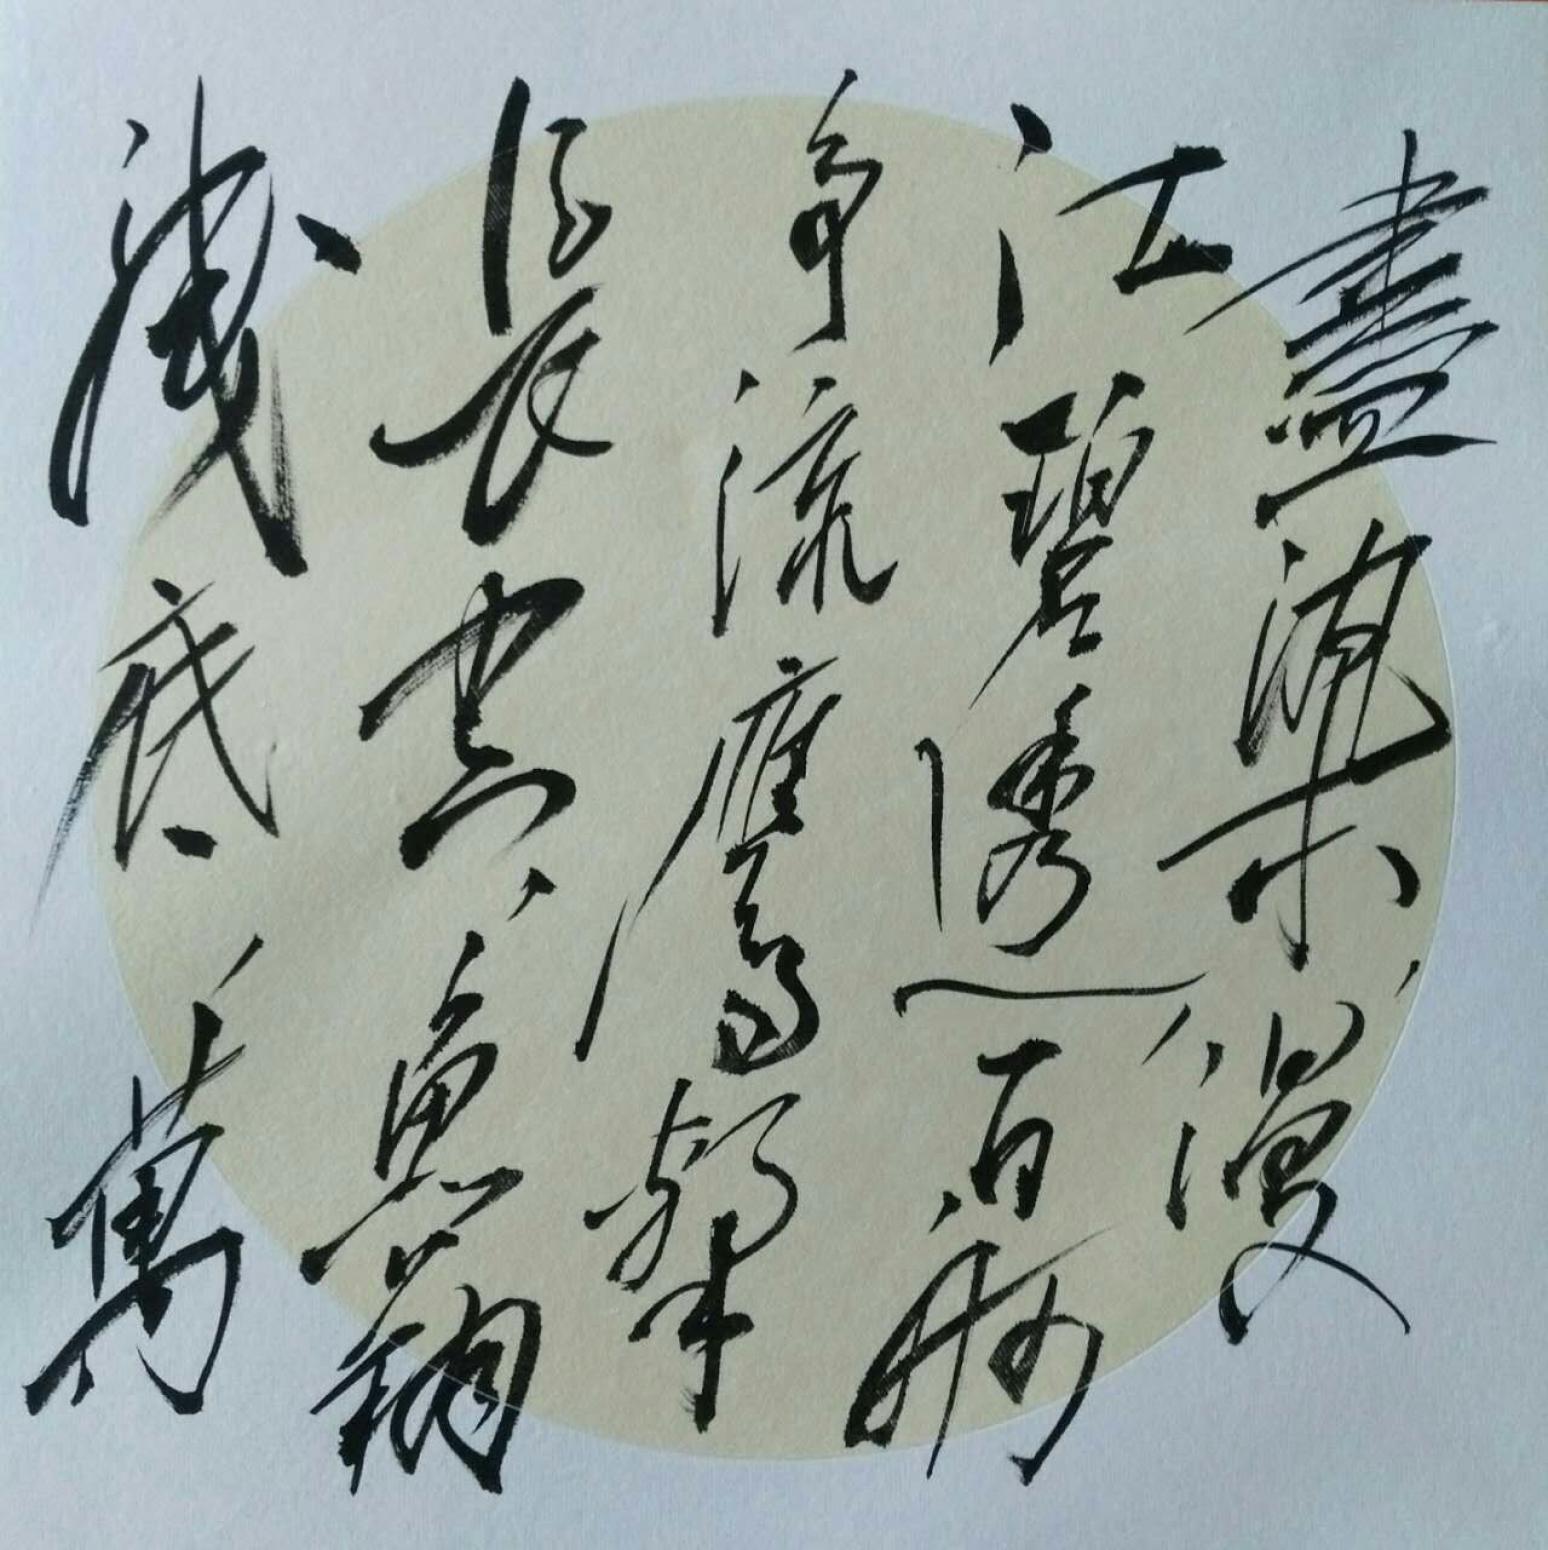 盡染漫
江碧透百舸
争流鷹擊
長空魚翔
淺底萬